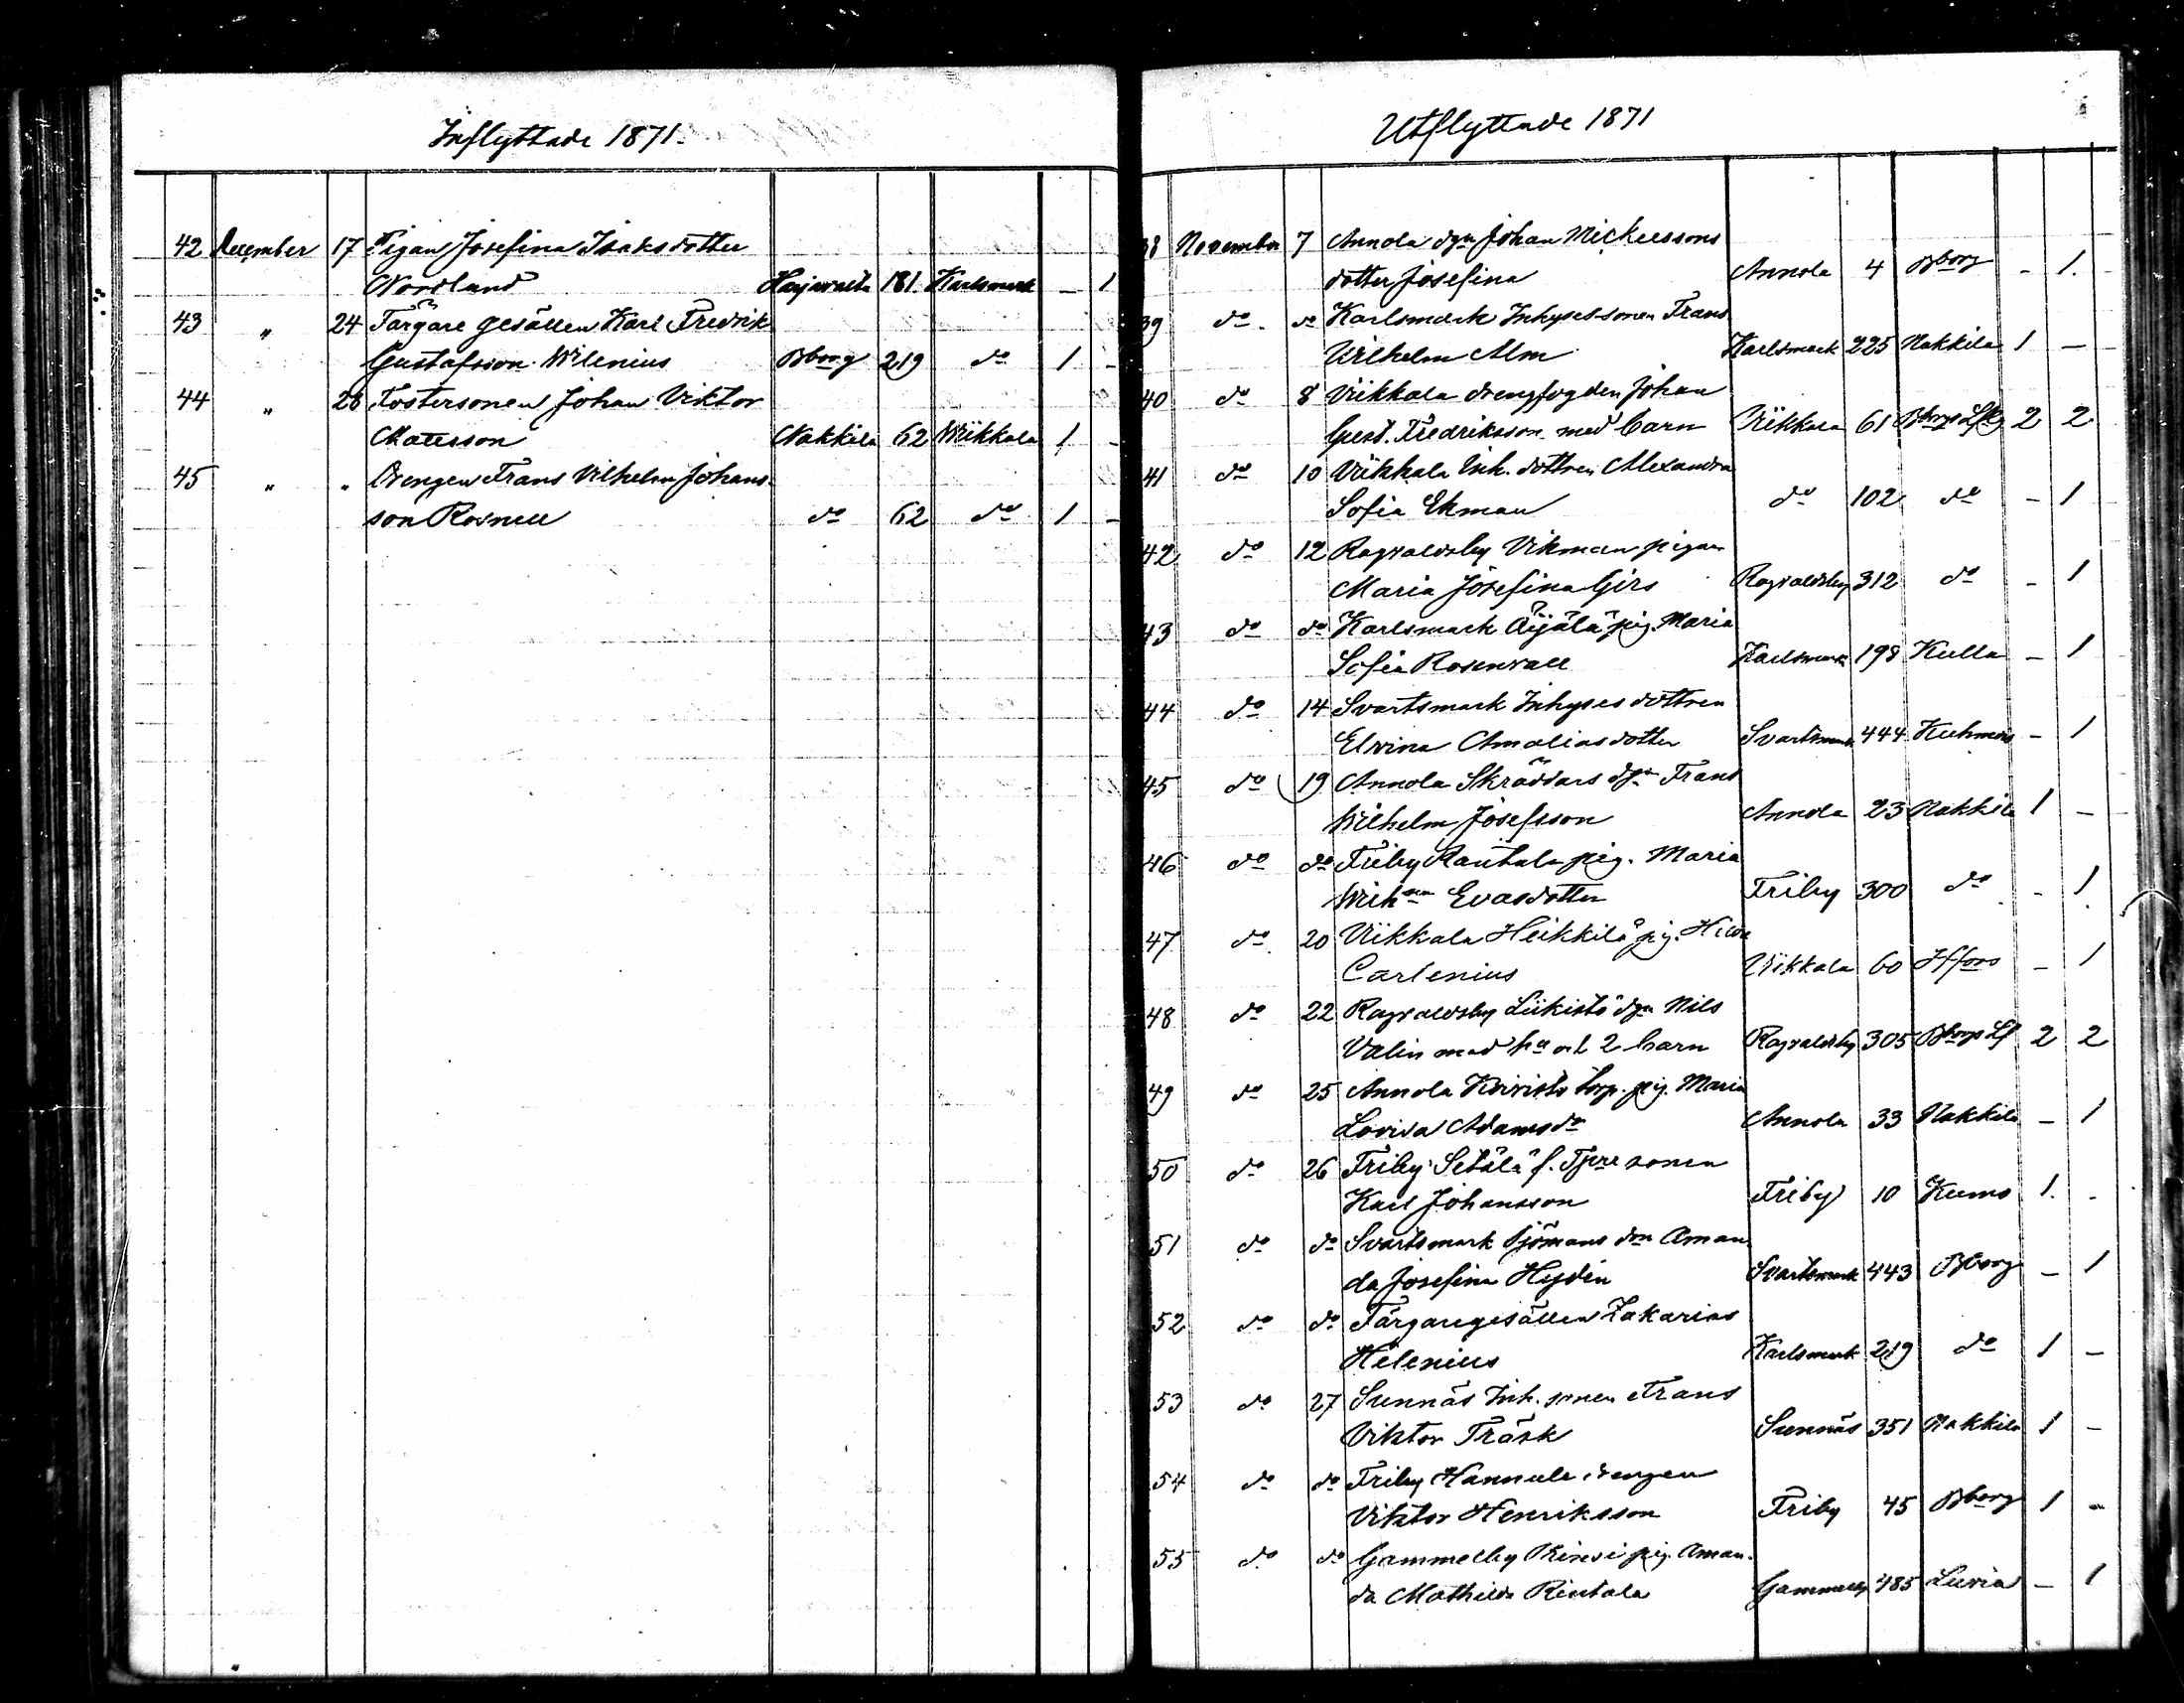 Inflyttade 1871.
42 December 17 Pigan Josefina Isaksdotter
Nordland 181 Karlsmark – 1
43 " 24 Färgare gesällen Karl Fredrik
Gustafsson Wilenius Bborg 219 do 1 –
44 " 28 Fostersonen Johan Viktor
Matsson Nakkila 62 Wiikkala 1 –
45 " " Drengen Frans Vilhelm Johans-
son Rosnell do 62 do 1 –
Utflyttade 1871
38 November 7 Annola dgn Johan Mickelssons
dotter Josefina Annola 4 Bborg – 1.
39 do do Karlsmark Inhyses-sonen Frans
Wilhelm Alm Karlsmark 225 Nakkila 1 –
40 do 8 Viikkala drengfogden Johan
Gust. Fredriksson med barn Viikkala 61 2 2
41 do 10 Viikkala Inh. dottren Alexandra
Sofia Ekman do 102 do – 1
42 do 12 Ragvaldsby Vikman pigan
Maria Josefina Girs Ragvaldsby 312 do – 1
43 do do Karlsmark Äijälä pig. Maria
Sofia Rosenvall Karlsmark 198 Kulla – 1
44 do 14 Svartsmark Inhyses dottren
Elvina Amaliasdotter Svartsmark 444 Kuhmois – 1
45 do 19 Annola Skräddars dgn Frans
Wilhelm Josefsson Annola 23 Nakkila 1 –
46 do do Friby Rantala pig. Maria
Wilhna Evasdotter Friby 300 do – 1
47 do 20 Viikkala Heikkilä pig. Hilda
Carlenius Viikkala 60 Hfors – 1
48 do 22 Ragvaldsby Liikistö dgn Nils
Valin med hu o 2 barn Ragvaldsby 305 Bborgs Lf 2 2
49 do 25 Annola Koivisto torp. pig. Maria
Lovisa Adamsdr Annola 33 Nakkila – 1
50 do 26 Friby Setälä f. Tpre sonen
Karl Johansson Friby 10 Kumo 1. -
51 do do Svartsmark Sjömans don Aman-
da Josefina Hydén Svartsmark 443 Bborg – 1
52 do do Färgaregesällen Zakarias
Helenius Karlsmark 219 do 1 –
53 do 27 Sunnäs Inh. sonen Frans
Viktor Träsk Sunnäs 351 Nakkila 1 –
54 do do Friby Hannula drengen
Viktor Henriksson Friby 45 Bborg 1 –
55 do do Gammelby pig. Aman-
da Mathilda Rintala Gammelby 485 Luvia – 1